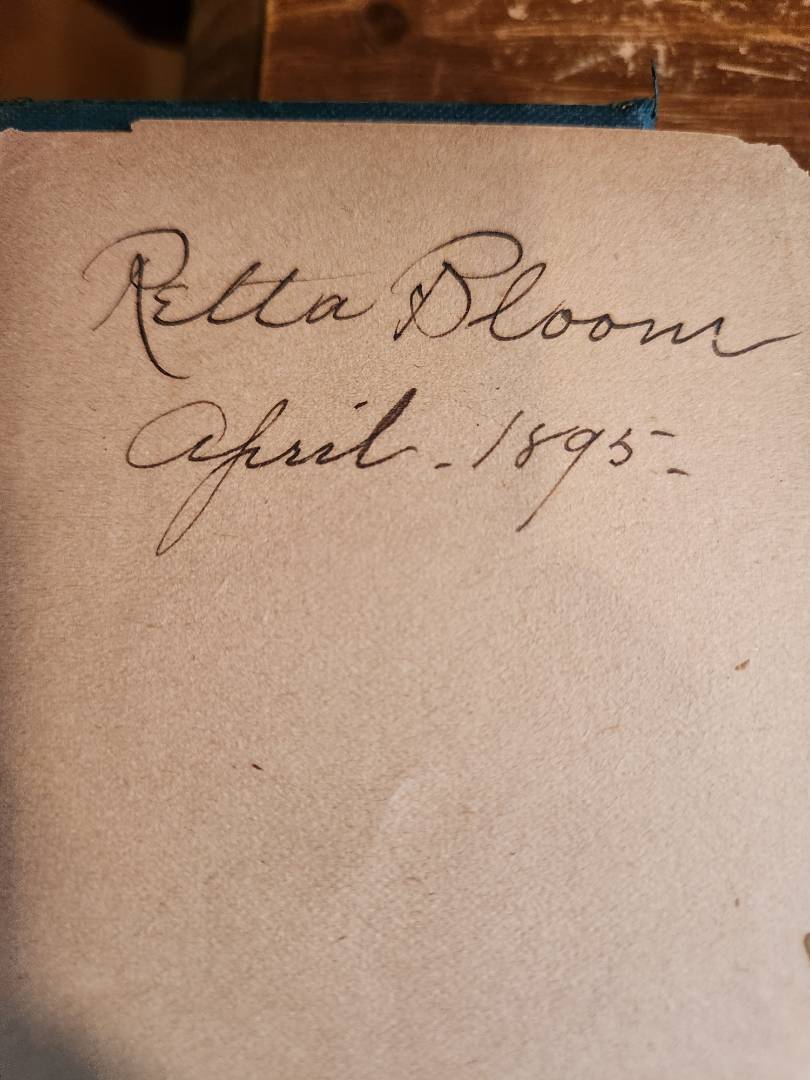 Retta Bloom
April - 1895 -